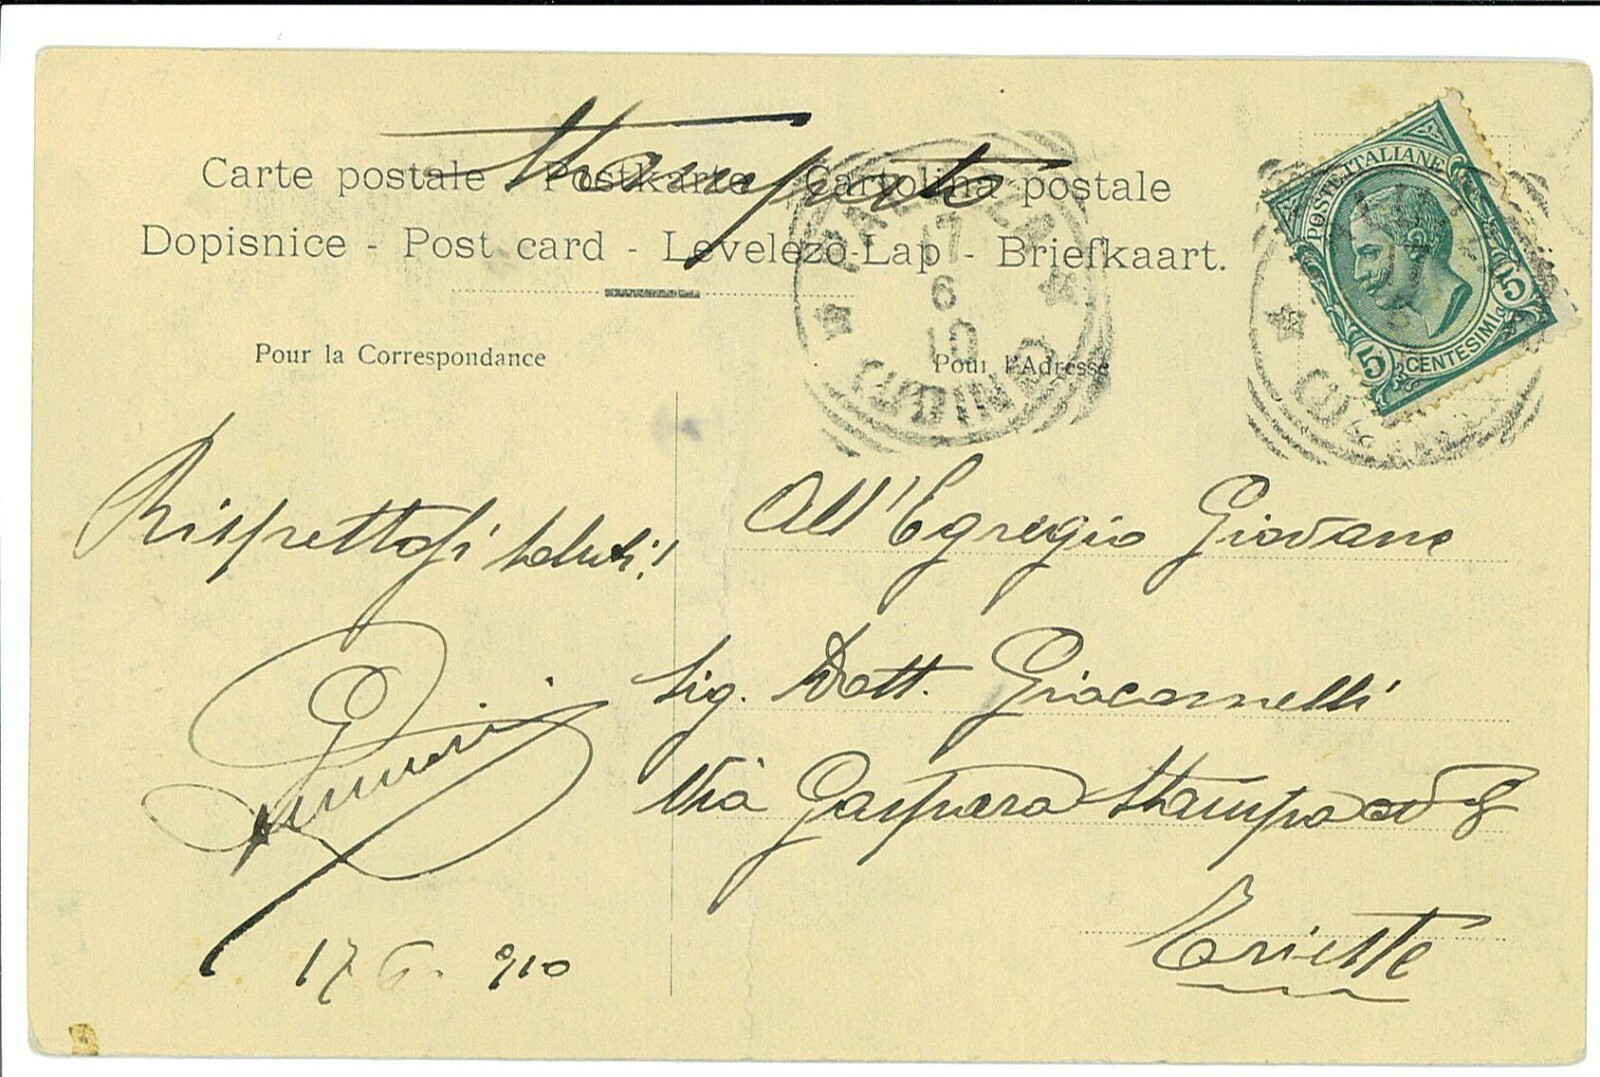 Stampato
Carte postale Postkarte Cartolina postale
Dopisnice - Post card - Levelezö-Lap - Briefkaart.
POSTE ITALIANE
5 CENTESIMI 5
17
6
10
(UDINE)
Pour la Correspondance
Pour l'Adresse
Rispettosi saluti!
17 6. 910
All'Egregio Giovane
Sig. Dott. Giacomelli
Via Gaspara Stampa
Trieste